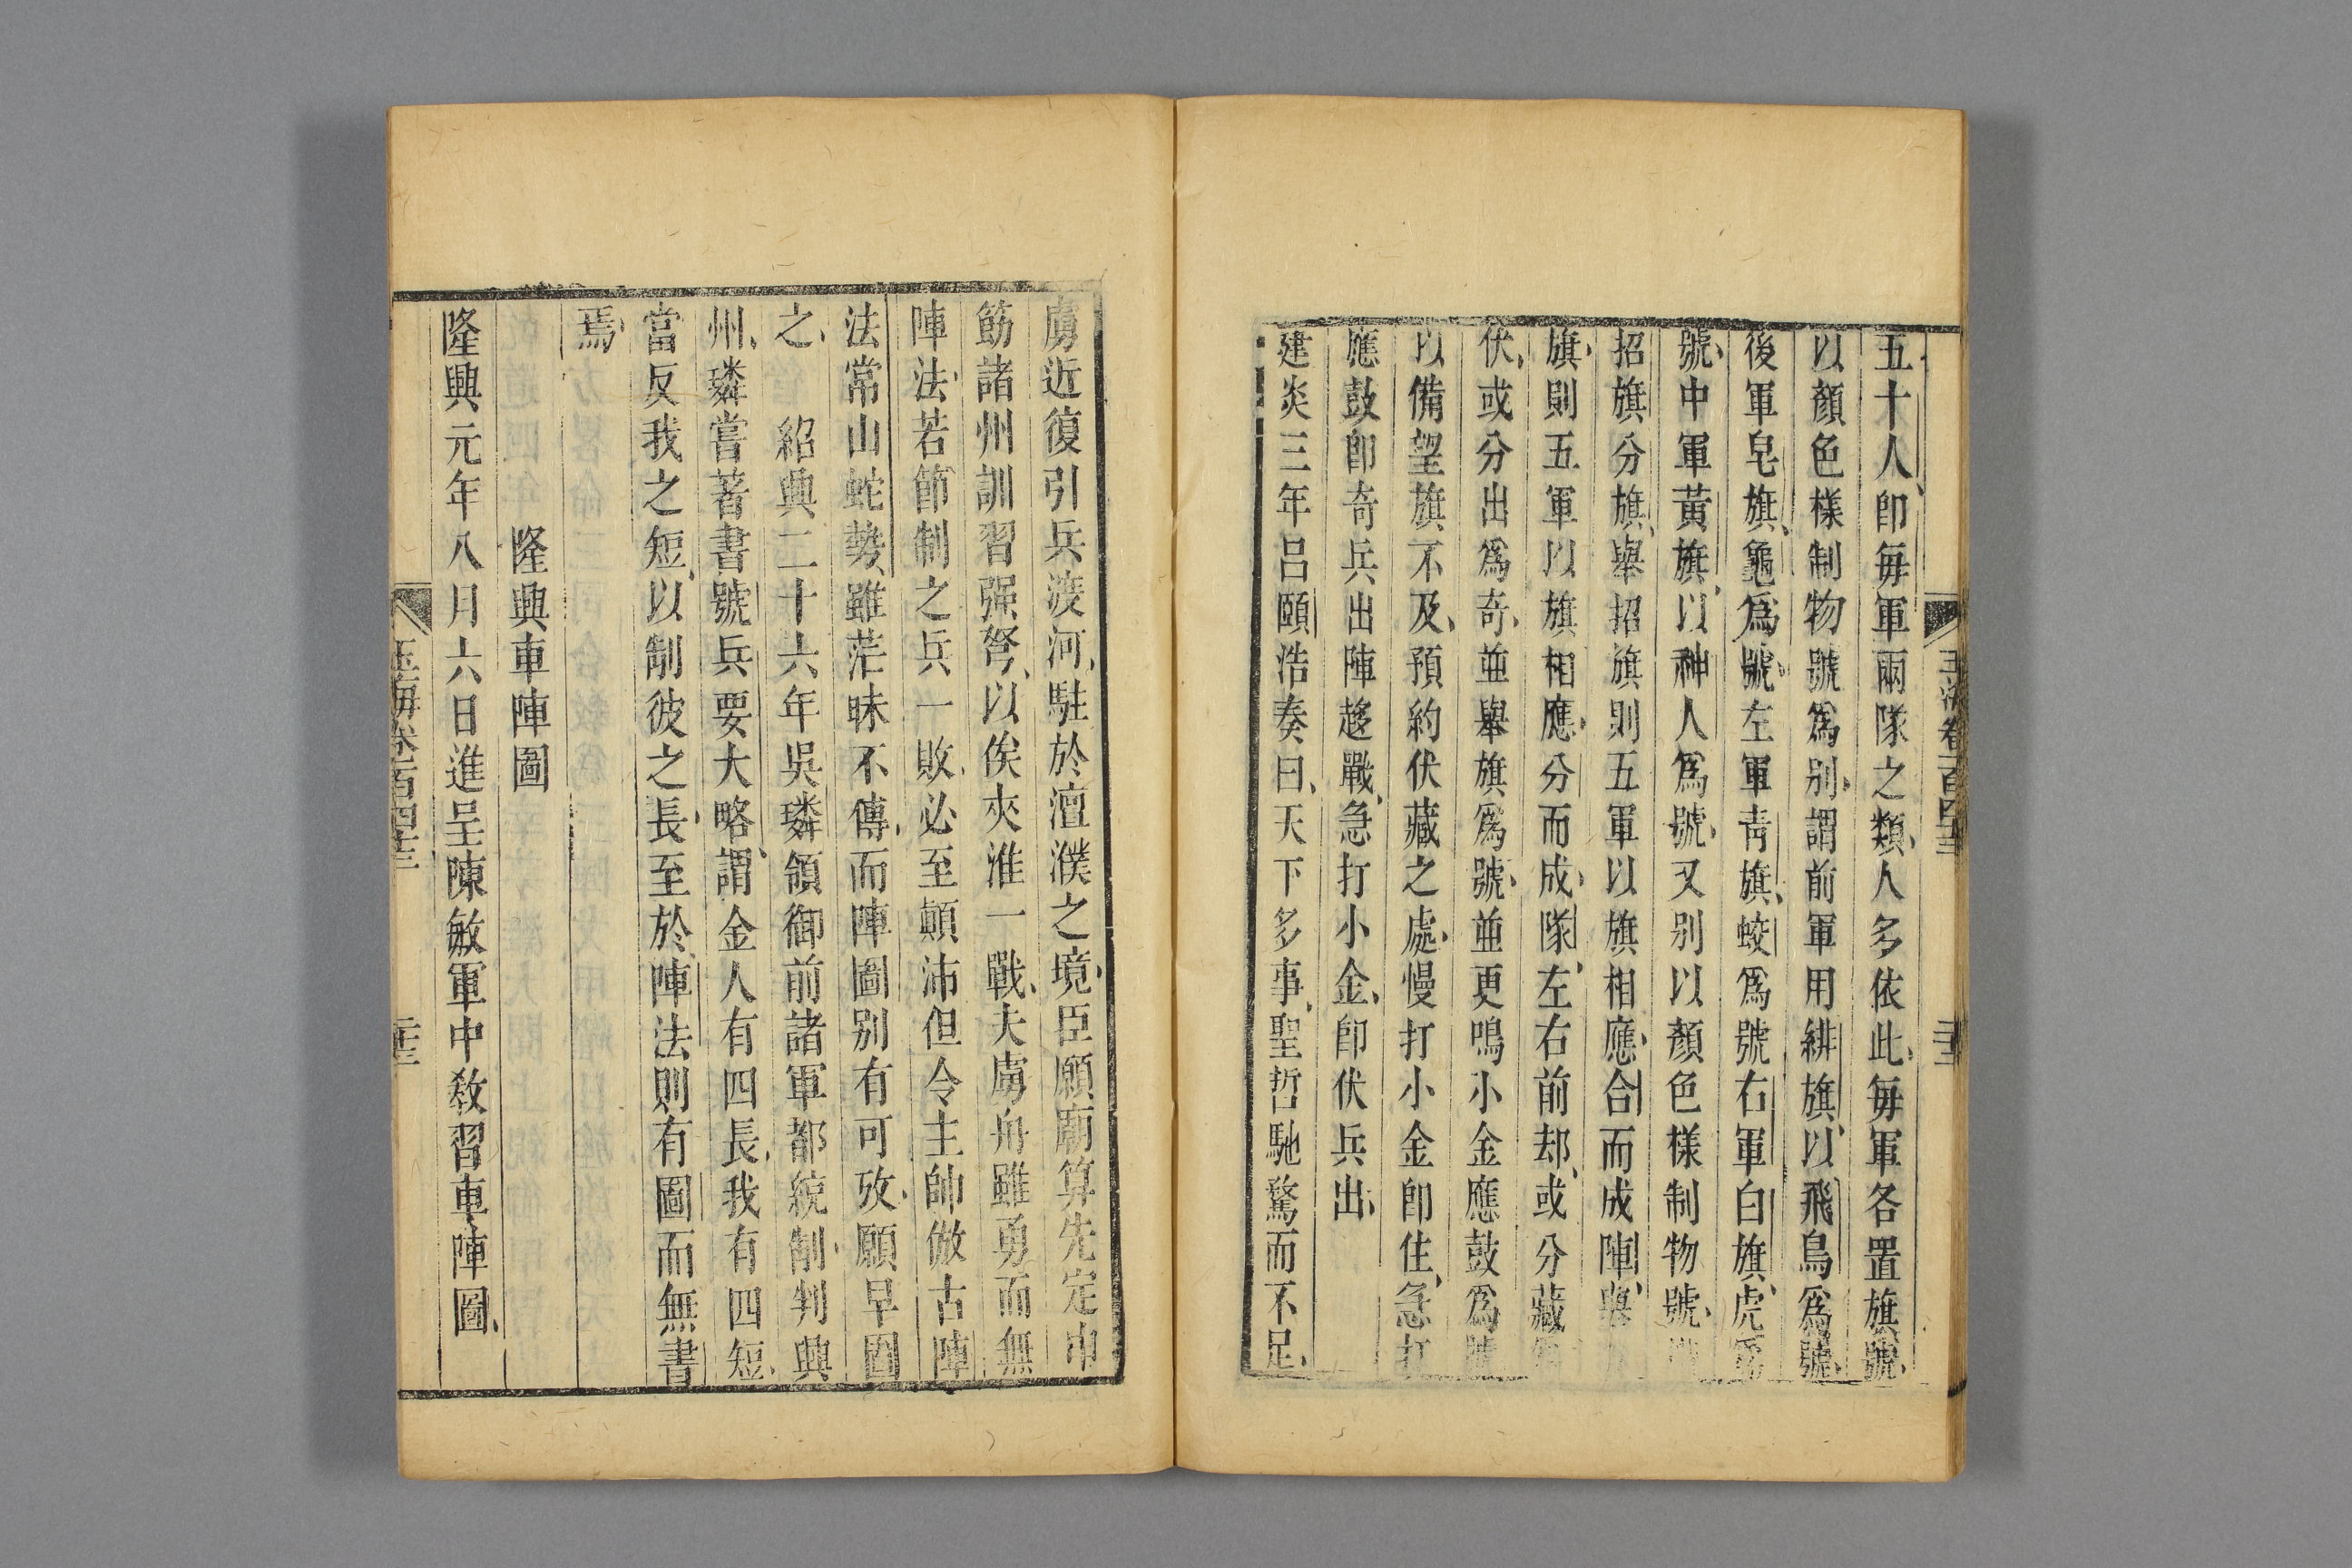 五十人、即每軍兩隊之類、人多依此、每軍各置旗號、
以顏色樣制物號爲别、謂前軍用緋旗、以飛鳥爲號、
後軍皂旗、龜爲號、左軍靑旗、蛟爲號右軍白旗、虎爲
號、中軍黃旗、以神人爲號、又别以顏色樣制物號、
招旗分旗、舉招旗則五軍以旗相應、合而成陣、舉
旗、則五軍以旗相應、分而成、隊、左右前却、或分藏
伏、或分出爲奇、並舉旗爲號、並更鳴小金應鼓爲號
以備望旗不及、預約伏藏之處、慢打小金即住、急打
應鼓即奇兵出陣趍戰、急打小金、即伏兵出、
建炎三年呂頤浩奏曰、天下多事、聖哲馳騖而不足、
玉海卷一百四十三
虜近復引兵渡河、駐於澶濮之境、臣願廟算先定申
飭諸州訓習强弩、以俟夾淮一戰、夫虜舟雖勇而無
陣法、若節制之兵一敗、必至顛沛但令主帥倣古陣
法常山蛇勢、雖茫昧不傳、而陣圖别有可攷、願早圖
之、 紹興二十六年吳璘領御前諸軍都統制、判興
州、璘嘗著書號兵要大略、謂金人有四長、我有四短、
當反我之短、以制彼之長、至於陣法則有圖而無書
焉、
隆興車陣圖
隆興元年八月六日進呈陳敏軍中敎習車陣圖、
玉海卷一百四十三